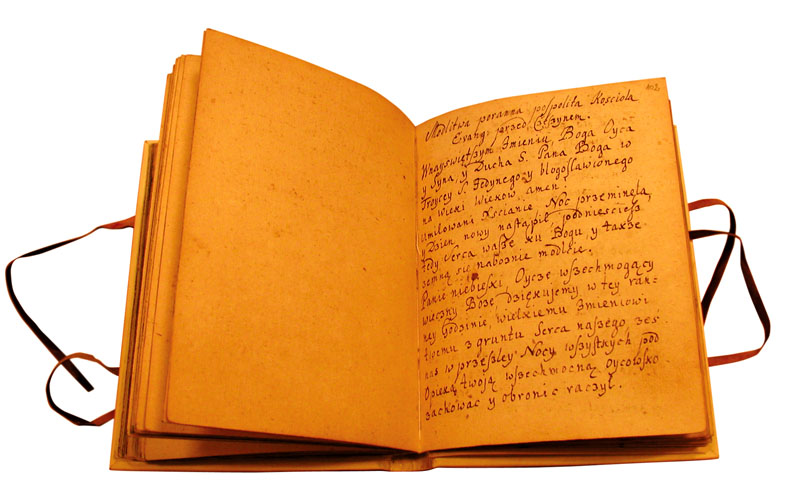 102
Modlitwa poranna pospolita Kosciola
Evang: przed Czszynem.
Wnayswiętszym Imieniu, Boga Oyca
y Syna, y Ducha S. Pana Boga w
Troycey S. Jedynego y blogoslawionego
na wieki wiekow amen.
Umilowani Xscianie Noc przeminęla,
y Dzien nowy nastąpil podniescież
tedy Serca wasze ku Bogu, y także
zemną się nabożnie modlcie.
Panie niebieski, Oycze wszechmogący
wieczny Boże dziękujemy w tey ran=
ney Godzinie, wielkiemu Imieniowi
twemu z gruntu Serca naszego żes
nas w przeszley Nocy wszystkych pod
Opieką twoją wszechmocną Oycowsko
zachowac y obronic raczyl.